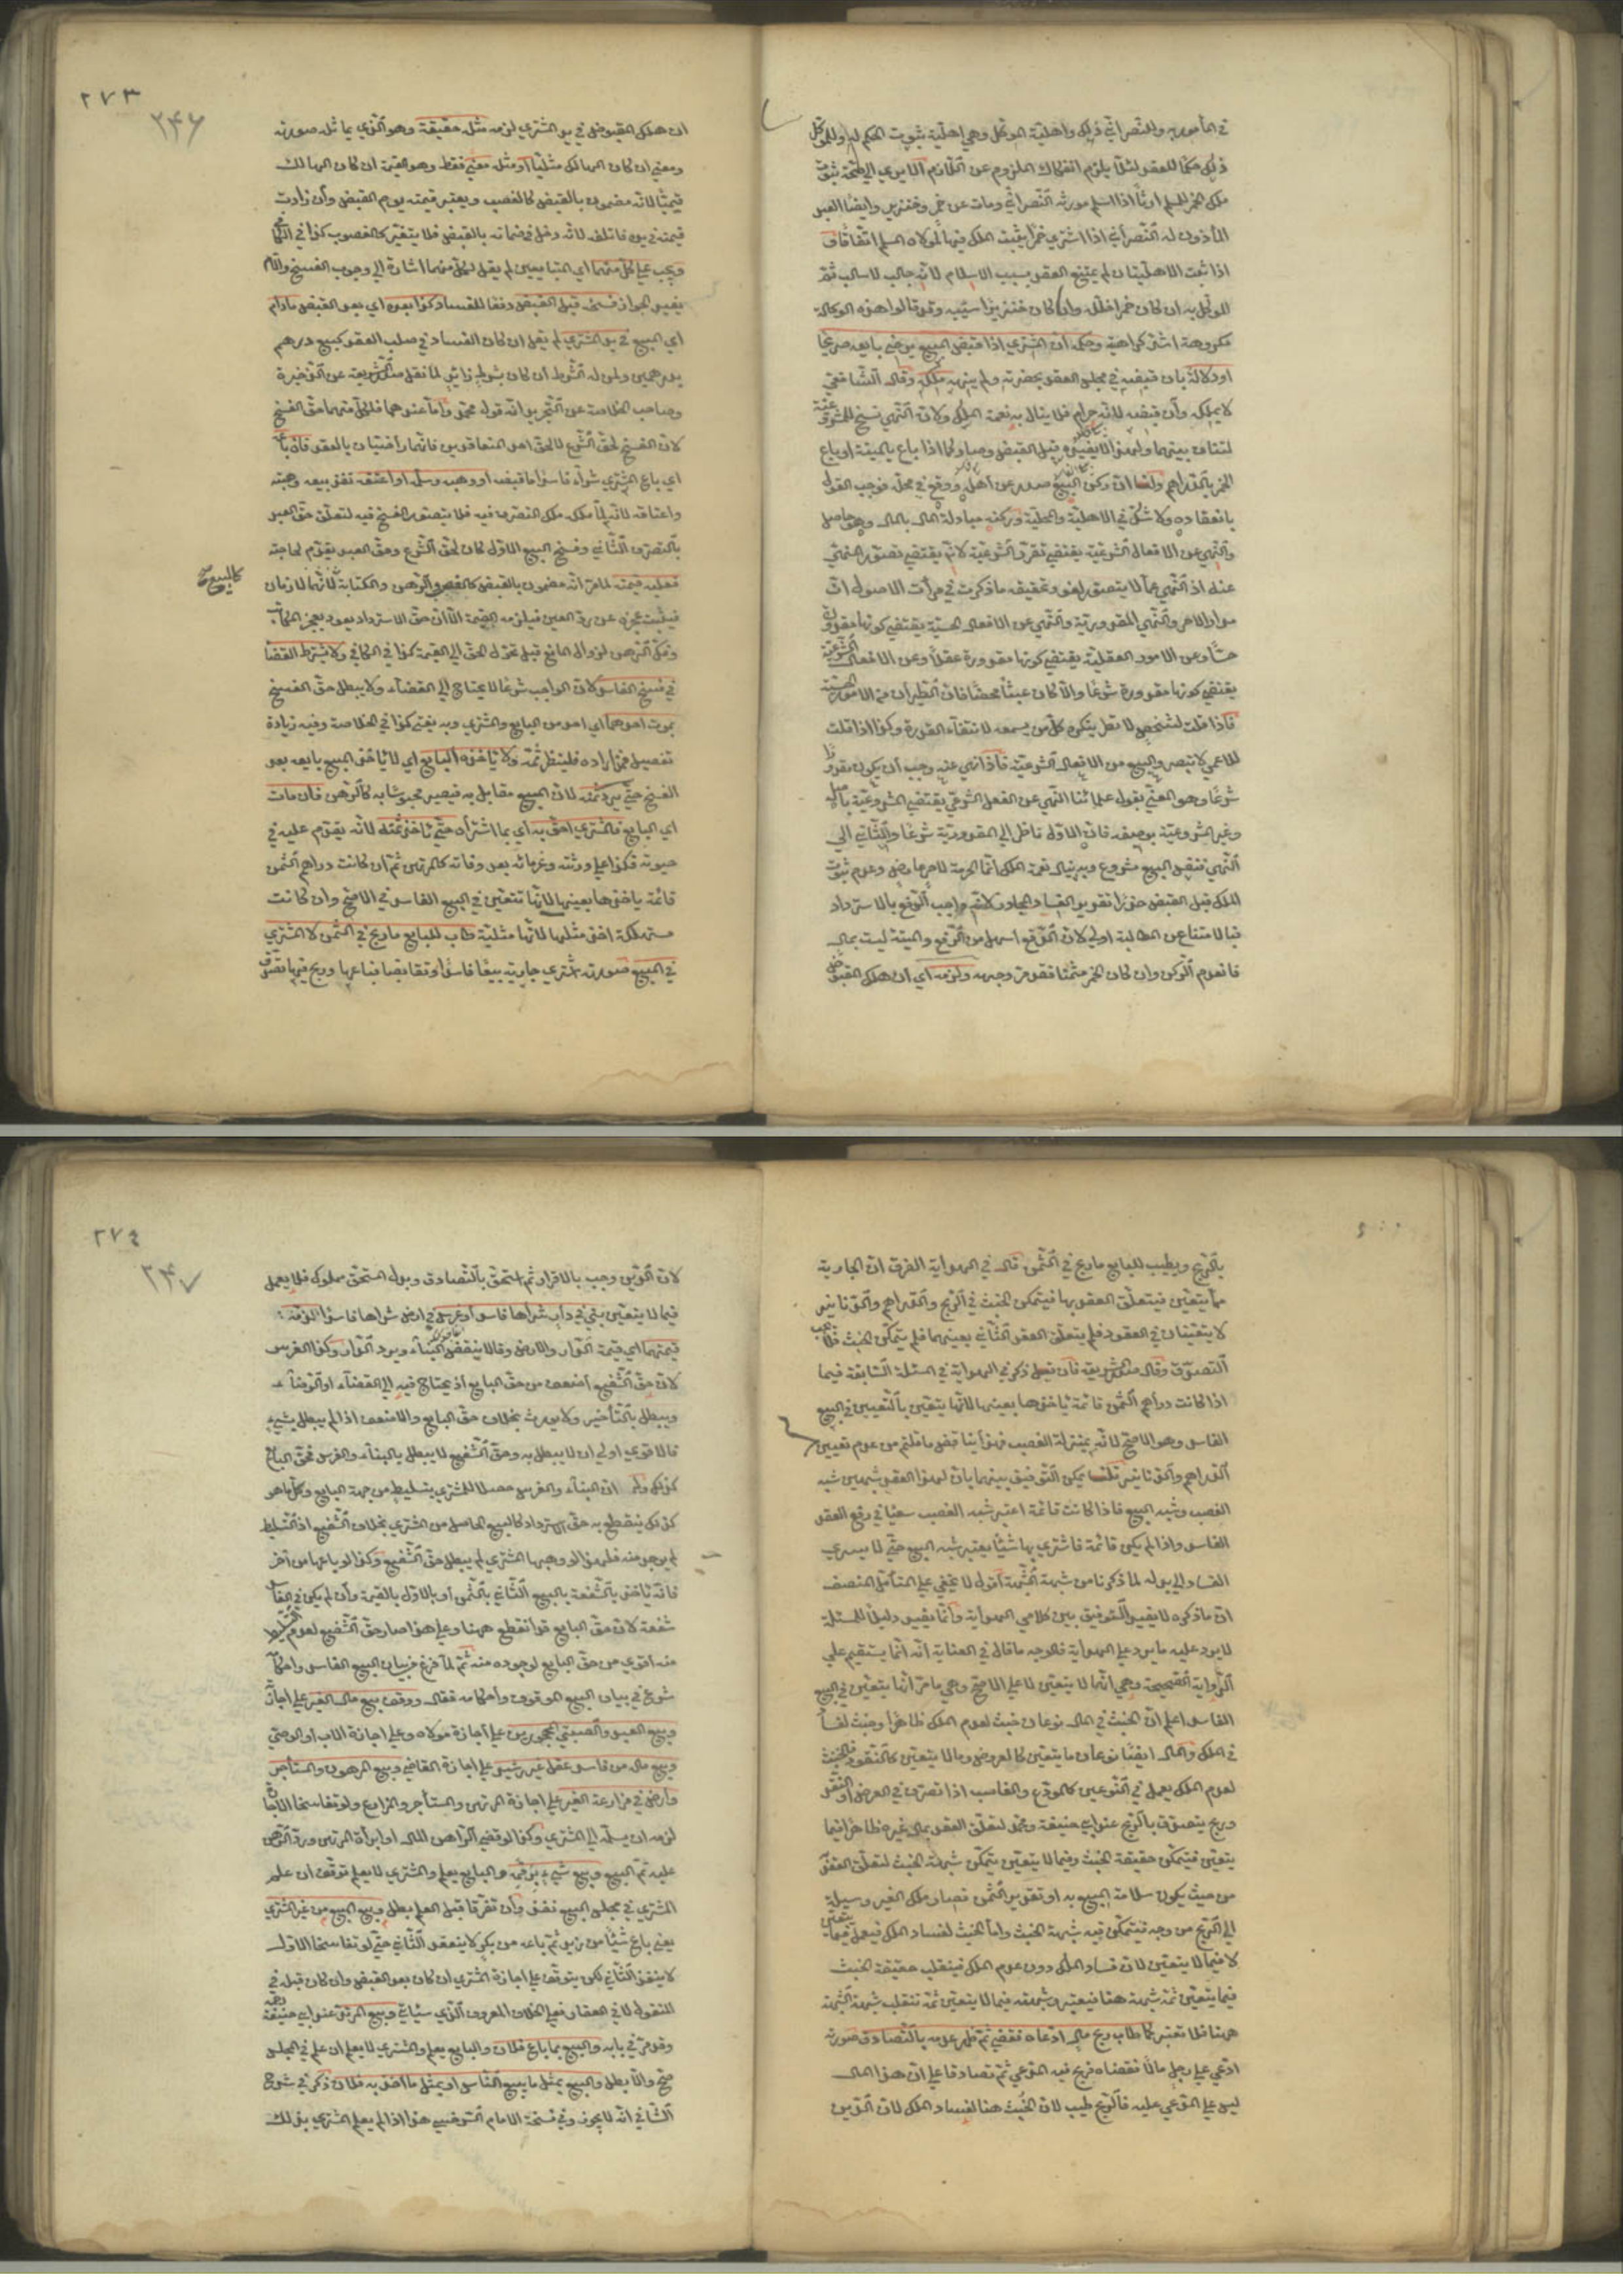 في المأمور به وللنصراني ذلك واهلية الموكل وهي اهلية ثبوت الحكم له وللموكل
ذلك حكما للعقد لئلا يلزم انفكاك الملزوم عن اللازم الا يرى الى صحة ثبوت
ملك الخمر للمسلم ارثا اذا اسلم مورثه النصراني ومات عن خمر وخنزير وايضا العبد
المأذون له النصراني اذا اشترى خمرا يثبت الملك فيها لمولاه المسلم اتفاقا فـ
اذا ثبت الاهليتان لم يمتنع العقد بسبب الاسلام لانه جالب لا سالب ثم
الموكل به ان كان خمرا خللها وان كان خنزيرا سيبه وقد قالوا هذه الوكالة
مكروهة اشد كراهية وحكمه ان المشتري اذا قبض المبيع برضى بايعه صريحا
او دلالة بان قبضه في مجلس العقد بحضرته ولم ينهه ملكه وقال الشافعي
لا يملكه وان قبضه لانه حرام فلا ينال به نعمة الملك ولان النهي نسخ للمشروعية
لتناف بينهما ولهذا لا يفيده قبل القبض وصار كما اذا باع بالميتة او باع
الخمر بالدراهم ولنا ان ركن البيع صدر عن اهله ووقع في محله فوجب القول
بانعقاده ولا شك في الاهلية والمحلية وركنه مبادلة المال بالمال وهو حاصل
والنهي عن الافعال الشرعية يقتضي تقرر الشرعية لانه يقتضي تصور المنهي
عنه اذ النهي عما لا يتصور لغو وتحقيقه ما ذكرت في مرآت الاصول ان
مدار الامر والنهي المقدورية والنهي عن الافعال الحسية يقتضي كونها مقدورة
حسا وعن الامور العقلية يقتضي كونها مقدورة عقلا وعن الافعال الشرعية
يقتضي كونها مقدورة شرعا والا كان عبثا محضا فان الطيران من الامور الحسية
فاذا قلت لشخص لا تطر ينكره كل من يسمعه لانتفاء القدرة وكذا اذا قلت
للاعمى لا تبصر والبيع من الافعال الشرعية فاذا نهى عنه وجب ان يكون مقدورا
شرعا وهو المعنى بقول علمائنا النهي عن الفعل الشرعي يقتضي المشروعية باصله
وغير المشروعية بوصفه فان الاول ناظر الى المقدورية شرعا والثاني الى
النهي فنفس البيع مشروع وبه ينال نعمة الملك انما الحرمة لامر عارض وعدم ثبوت
الملك قبل القبض حذرا تقدير الفساد المجاور لانه واجب الرفع بالاسترداد
فبالامتناع عن المطالبة اولى لان الدفع اسهل من الرفع والميتة ليست بمال
فانعدم الركن وان كان الخمر مثمنا فقد مر وجهه ولزمه اي ان هلك المقبوض
٢٧٣
٢٤٦
ان هلك المقبوض في يد المشتري لزمه مثله حقيقة وهو الذي يماثل صورة
ومعنى ان كان الهالك مثليا او مثله معنى فقط وهو القيمة ان كان الهالك
قيميا لانه مضمون بالقبض كالغصب ويعتبر قيمته يوم القبض وان زادت
قيمته في يده فاتلفه لانه دخل في ضمانه بالقبض فلا يتغير كالمغصوب كذا في الكافي
ويجب على كل منهما اي المتبايعين لم يقل لكل منهما اشارة الى وجوب الفسخ واللام
يفيد الجواز فسخه قبل القبض دفعا للفساد وكذا بعده اي بعد القبض مادام
اي المبيع في يد المشتري لم يقل ان كان الفساد في صلب العقد كبيع درهم
بدرهمين ولمن له الشرط ان كان بشرط زائد لما نقل صدر الشريعة عن الذخيرة
وصاحب الخلاصة عن التجريد انه قول محمد واما عندهما فلكل منهما حق الفسخ
لان الفسخ لحق الشرع لا لحق احد المتعاقدين فانهما راضيان بالعقد فان باعه
اي باع المشتري شراء فاسدا ما قبضه او وهبه وسلم او اعتقه نفذ بيعه وهبته
واعتاقه لانه لما ملكه ملك التصرف فيه فلا يتصور الفسخ فيه لتعلق حق العبد
بالتصرف الثاني وفسخ البيع الاول كان لحق الشرع وحق العبد يقدم لحاجته
فعليه قيمته لما مر انه مضمون بالقبض كالغصب والرهن والكتابة كالبيع لانهما لازمان
كالبيع صح
فيثبت عجزه عن رد العين فيلزمه القيمة الا ان حق الاسترداد يعود بعجز المكاتب
وفك الرهن لزوال المانع قبل تحول الحق الى القيمة كذا في الكافي ولا يشترط القضا
في فسخ الفاسد لان الواجب شرعا لا يحتاج الى القضاء ولا يبطل حق الفسخ
بموت احدهما اي احد من البايع والمشتري وبه يفتى كذا في الخلاصة وفيه زيادة
تفصيل فمن اراده فلينظر ثمه ولا ياخذه البايع اي لا ياخذ المبيع بايعه بعد
الفسخ حتى يرد ثمنه لان المبيع مقابل به فيصير محبوسا به كالرهن فان مات
اي البايع فالمشتري احق به اي بما اشتراه حتى ياخذ ثمنه لانه يقدم عليه في
حيوته فكذا على ورثته وغرمائه بعد وفاته كالمرتهن ثم ان كانت دراهم الثمن
قائمة ياخذها بعينها لانها تتعين في البيع الفاسد في الاصح وان كانت
مستهلكة اخذ مثلها لانها مثلية طاب للبايع ما ربح في الثمن لا المشتري
في المبيع صورته اشترى جارية بيعا فاسدا وتقابضا فباعها وربح فيها تصدق
بالربح ويطيب للبايع ما ربح في الثمن قال في الهداية الفرق ان الجارية
مما يتعين فيتعلق العقد بها فيتمكن الخبث في الربح والدراهم والدنانير
لا يتعينان في العقود فلم يتعلق العقد الثاني بعينهما فلم يتمكن الخبث فلا يجب
التصدق وقال صدر الشريعة فان قيل ذكر في الهداية في المسئلة السابقة فيما
اذا كانت دراهم الثمن قائمة ياخذها بعينها لانها يتعين بالتعيين في البيع
الفاسد وهو الاصح لانه بمنزلة الغصب فهذا يناقض ما قلتم من عدم تعيين
الدراهم والدنانير قلنا يمكن التوفيق بينهما بان لهذا العقد شبهين شبه
الغصب وشبه البيع فاذا كانت قائمة اعتبر شبه الغصب سعيا في رفع العقد
الفاسد واذا لم يكن قائمة فاشترى بها شيئا يعتبر شبه البيع حتى لا يسري
الفساد الى بدله لما ذكرنا من شبهة الشبهة اقول لا يخفى على المتأمل المنصف
ان ما ذكره لا يفيد التوفيق بين كلامي الهداية وانما يفيد دليلا للمسئلة
لا يرد عليه ما يرد على الهداية فالوجه ما قال في العناية انه انما يستقيم على
الرواية الصحيحة وهي انها لا يتعين لا على الاصح وهي ما مر انها يتعين في البيع
الفاسد اعلم ان الخبث في المال نوعان خبث لعدم الملك ظاهرا وخبث لفساد
في الملك والمال ايضا نوعان ما يتعين كالعروض وما لا يتعين كالنقود فالخبث
لعدم الملك يعمل في النوعين كالمودع والغاصب اذا تصرف في العرض او النقد
وربح يتصدق بالربح عند ابي حنيفة ومحمد لتعلق العقد بمال غيره ظاهرا فيما
يتعين فيتمكن حقيقة الخبث وفيما لا يتعين يتمكن شبهة الخبث لتعلق العقد
من حيث يكون سلامة المبيع به او تقدير الثمن فصار ملك الغير وسيلة
الى الربح من وجه فيتمكن فيه شبهة الخبث واما الخبث لفساد الملك فيعمل فيما يتعين
لا فيما لا يتعين لان فساد الملك دون عدم الملك فينقلب حقيقة الخبث
فيما يتعين ثمة شبهة هنا فيعتبر وشبهته فيما لا يتعين ثمة تنقلب شبهة الشبهة
ههنا فلا تعتبر كما طاب ربح مال ادعاه فقضي ثم ظهر عدمه بالتصادق صورته
ادعى على رجل مالا فقضاه فربح فيه المدعي ثم تصادقا على ان هذا المال
ليس على المدعى عليه فالربح طيب لان الخبث هنا لفساد الملك لان الدين
٢٧٤
٢٤٧
لان الدين وجب بالاقرار ثم استحق بالتصادق وبدل المستحق مملوك فلا يعمل
فيما لا يتعين بنى في دار شراها فاسدا او غرس في ارض شراها فاسدا لزمه
قيمتهما اي قيمة الدار والارض وقالا ينقض البناء ويرد الدار وكذا الغرس
لان حق الشفيع اضعف من حق البايع اذ يحتاج فيه الى القضاء او الرضاء
ويبطل بالتأخير ولا يورث بخلاف حق البايع والاضعف اذا لم يبطل بشيء
فالاقوى اولى ان لا يبطل به وحق الشفيع لا يبطل بالبناء والغرس فحق البايع
كذلك وله ان البناء والغرس حصلا للمشتري بتسليط من جهة البايع وكل ما هو
كذلك ينقطع به حق الاسترداد كالبيع الحاصل من المشتري بخلاف الشفيع اذ التسليط
لم يوجد منه فلهذا لو وهبها المشتري لم يبطل حق الشفيع وكذا لو باعها من آخر
فانه ياخذ بالشفعة بالبيع الثاني بالثمن او بالاول بالقيمة وان لم يكن في الفاسد
شفعة لان حق البايع قد انقطع ههنا وعلى هذا صار حق الشفيع لعدم التسليط
منه اقوى من حق البايع لوجوده منه ثم لما فرغ من بيان البيع الفاسد واحكامه
شرع في بيان البيع الموقوف واحكامه فقال ووقف بيع مال الغير على اجازته
وبيع العبد والصبي المحجورين على اجازة مولاه وعلى اجازة الاب او الوصي
وبيع ماله من فاسد عقل غير رشيد على اجازة القاضي وبيع المرهون والمستأجر
وارض في مزارعة الغير على اجازة المرتهن والمستأجر والمزارع ولو تفاسخا الاجارة
لزمه ان يسلمه الى المشتري وكذا لو قضى الراهن المال او ابرأه المرتهن ورد الرهن
عليه تم البيع وبيع شيء برقمه والبايع يعلم والمشتري لا يعلم توقف ان علم
المشتري في مجلس البيع نفذ وان تفرقا قبل العلم بطل وبيع المبيع من غير المشتري
يعني باع شيئا من زيد ثم باعه من بكر لا ينعقد الثاني حتى لو تفاسخا الاول
لا ينفذ الثاني لكن يتوقف على اجازة المشتري ان كان بعد القبض وان كان قبله في
المنقول لا في العقار فعلى الخلاف المعروف الذي سيأتي وبيع المرتد عند ابي حنيفة رحمه
وقد مر في بابه والبيع بما باع فلان والبايع يعلم والمشتري لا يعلم ان علم في المجلس
صح والا بطل والبيع بمثل ما يبيع الناس او بمثل ما اخذ به فلان ذكر في شرح
الشافي انه لا يجوز وفي نسخة الامام السرخسي هذا اذا لم يعلم المشتري بذلك